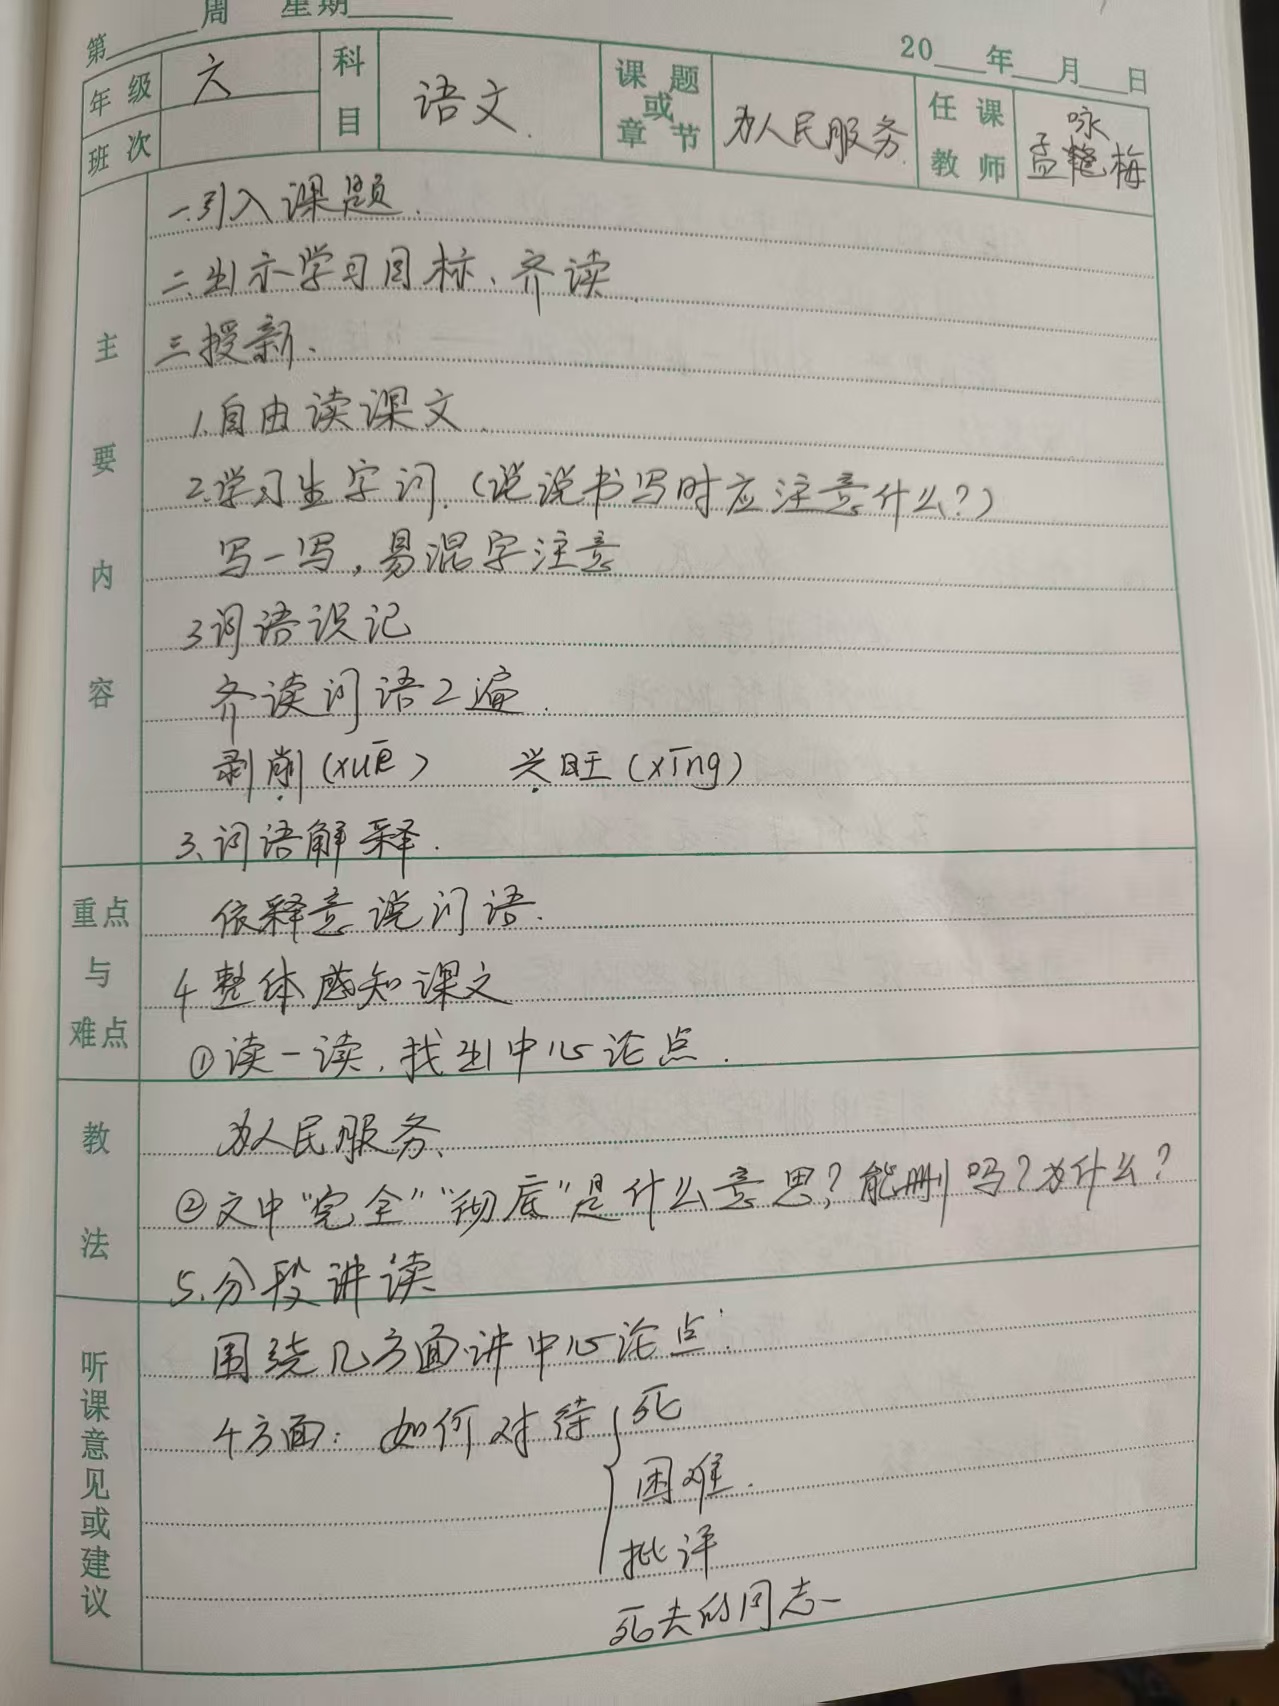 第 周 星期
20 年 月 日
年级 六 科目 语文. 课题或章节 为人民服务. 任课教师 孟 咏梅
班次
主要内容
一.引入课题.
二.出示学习目标、齐读.
三授新.
1.自由读课文.
2.学习生字词.(说说书写时应注意什么?)
写一写,易混字注意
3词语识记
齐读词语2遍.
剥削(xuē) 兴旺(xīng)
3、词语解释.
重点与难点
依释意说词语.
4 整体感知课文
①读一读.找出中心论点.
教法
为人民服务、
②文中“完全”“彻底”是什么意思?能删吗?为什么?
5.分段讲读
听课意见或建议
围绕几方面讲中心论点:
4方面:如何对待{死
困难.
批评
死去的同志